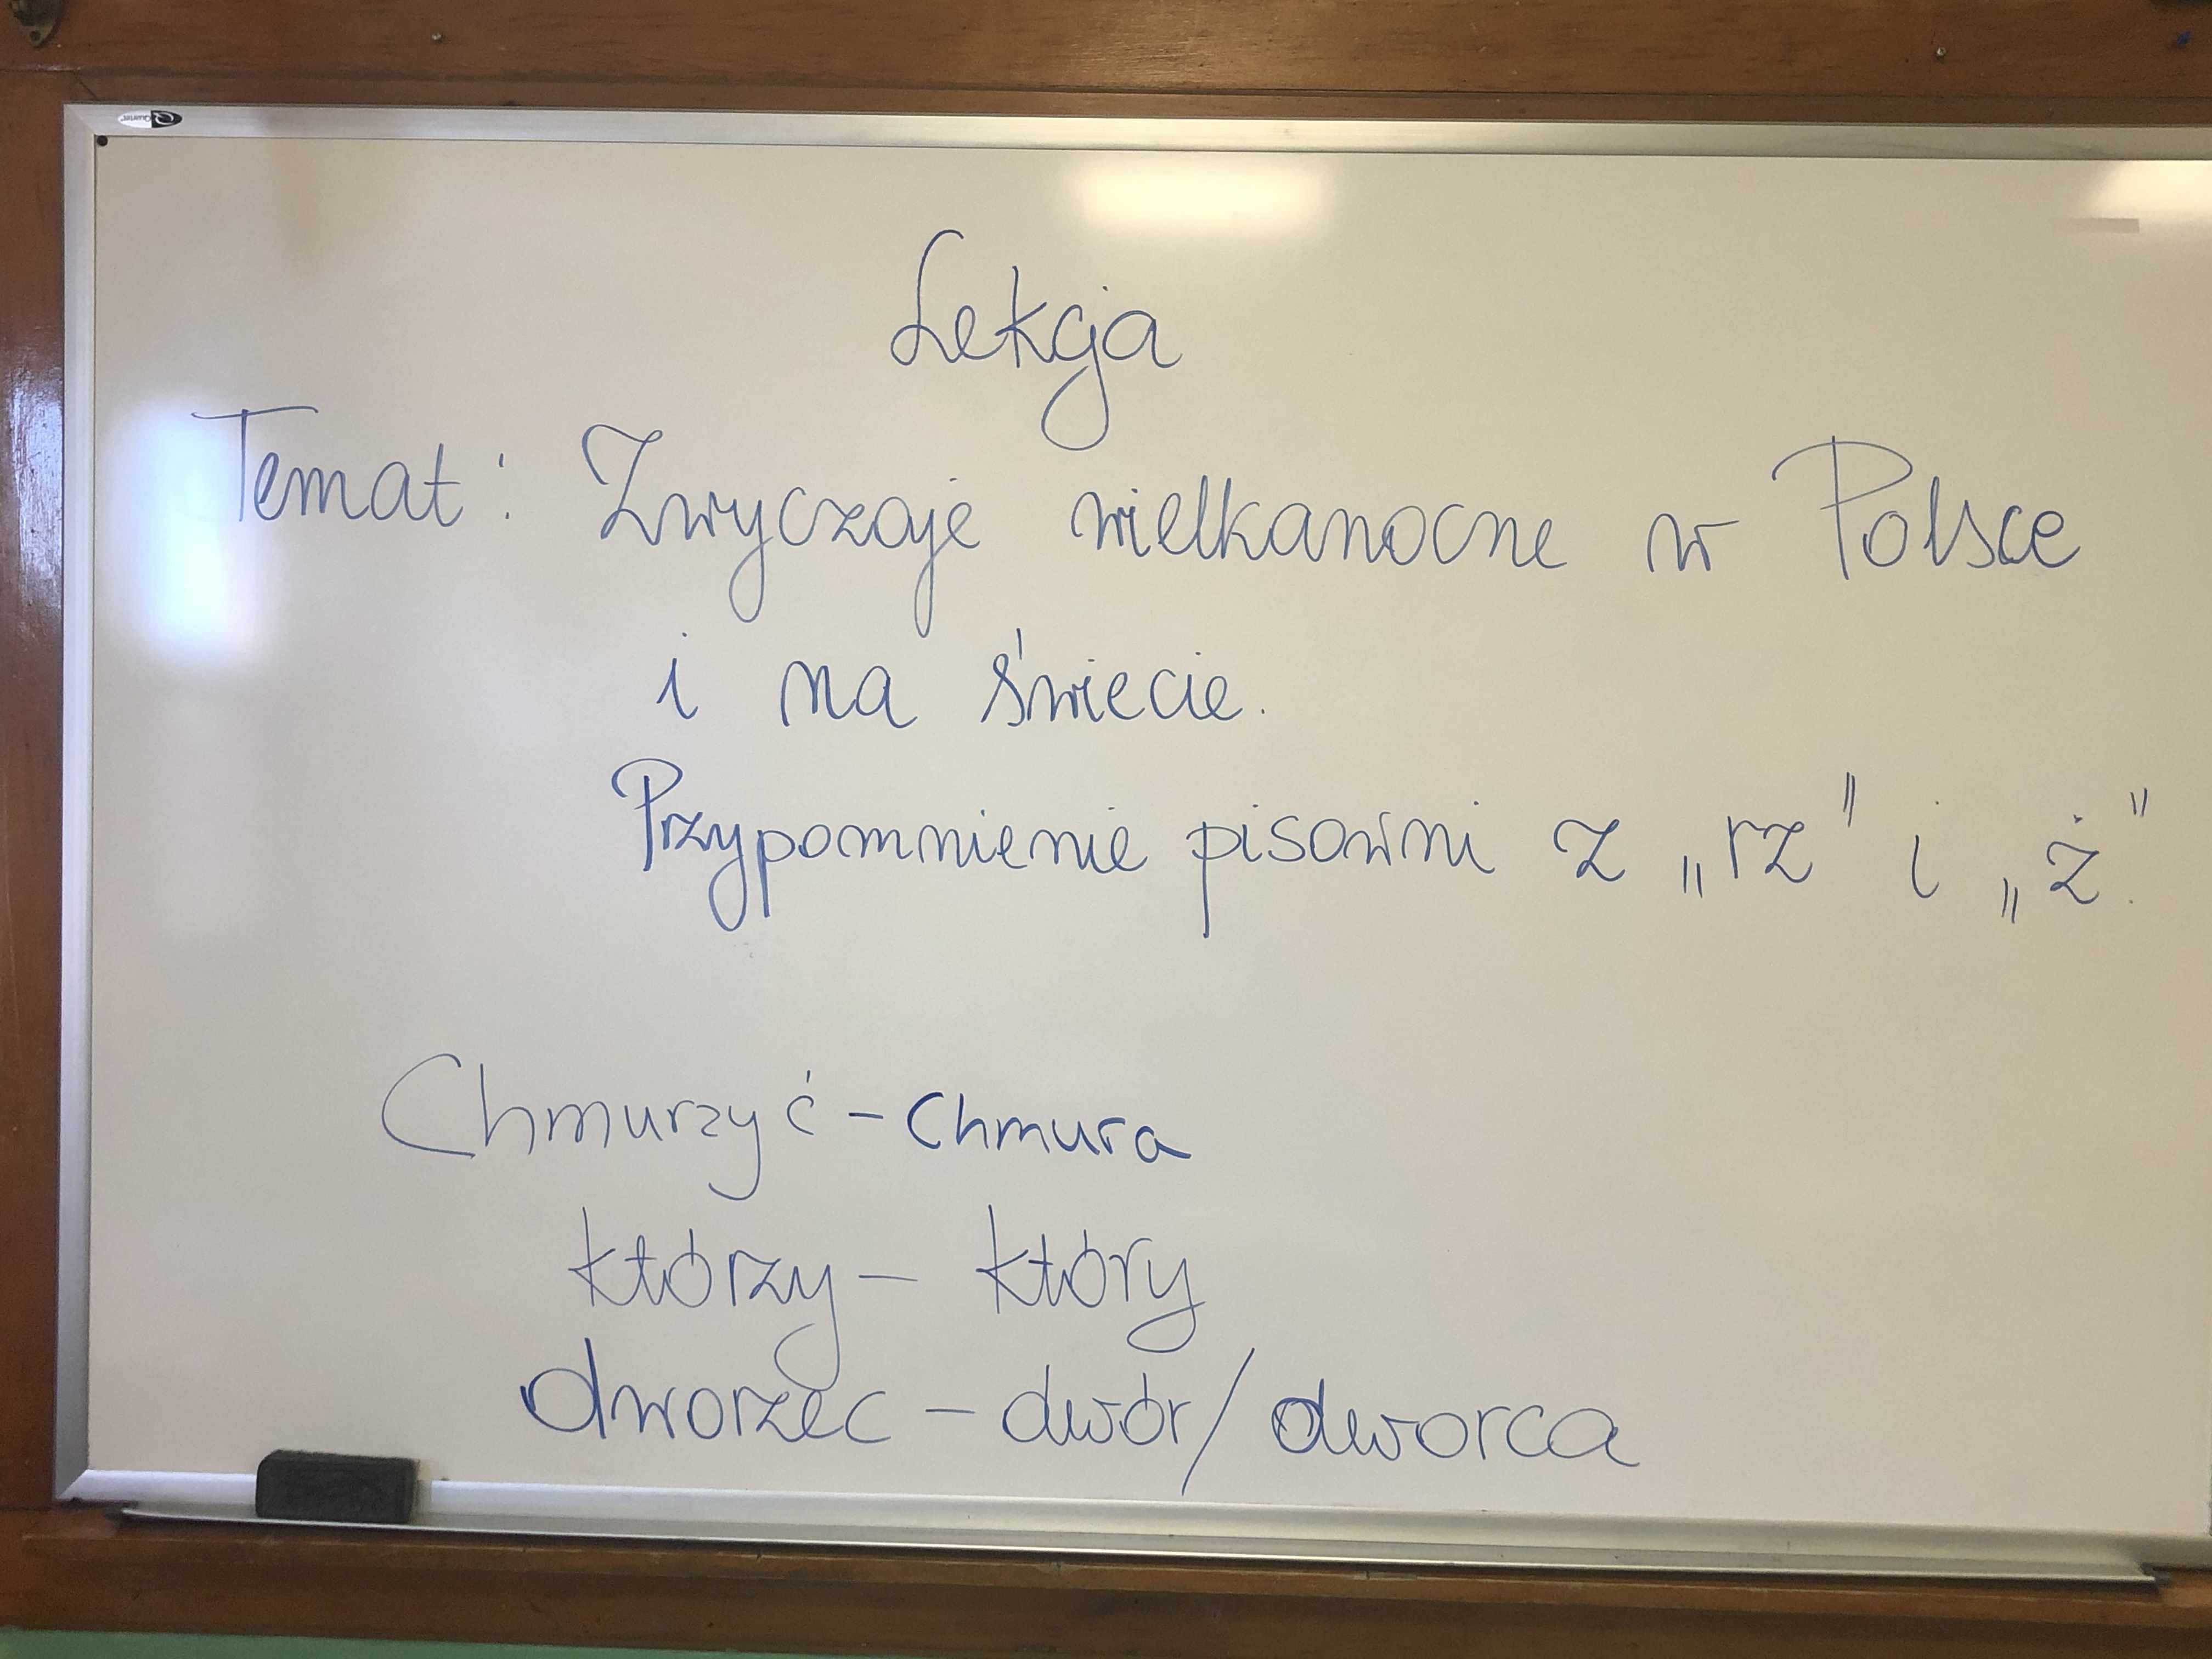 Quartet
Lekcja
Temat: Zwyczaje wielkanocne w Polsce
i na świecie.
Przypomnienie pisowni z „rz” i „ż”.
Chmurzyć – Chmura
którzy – który
dworzec – dwór / dworca